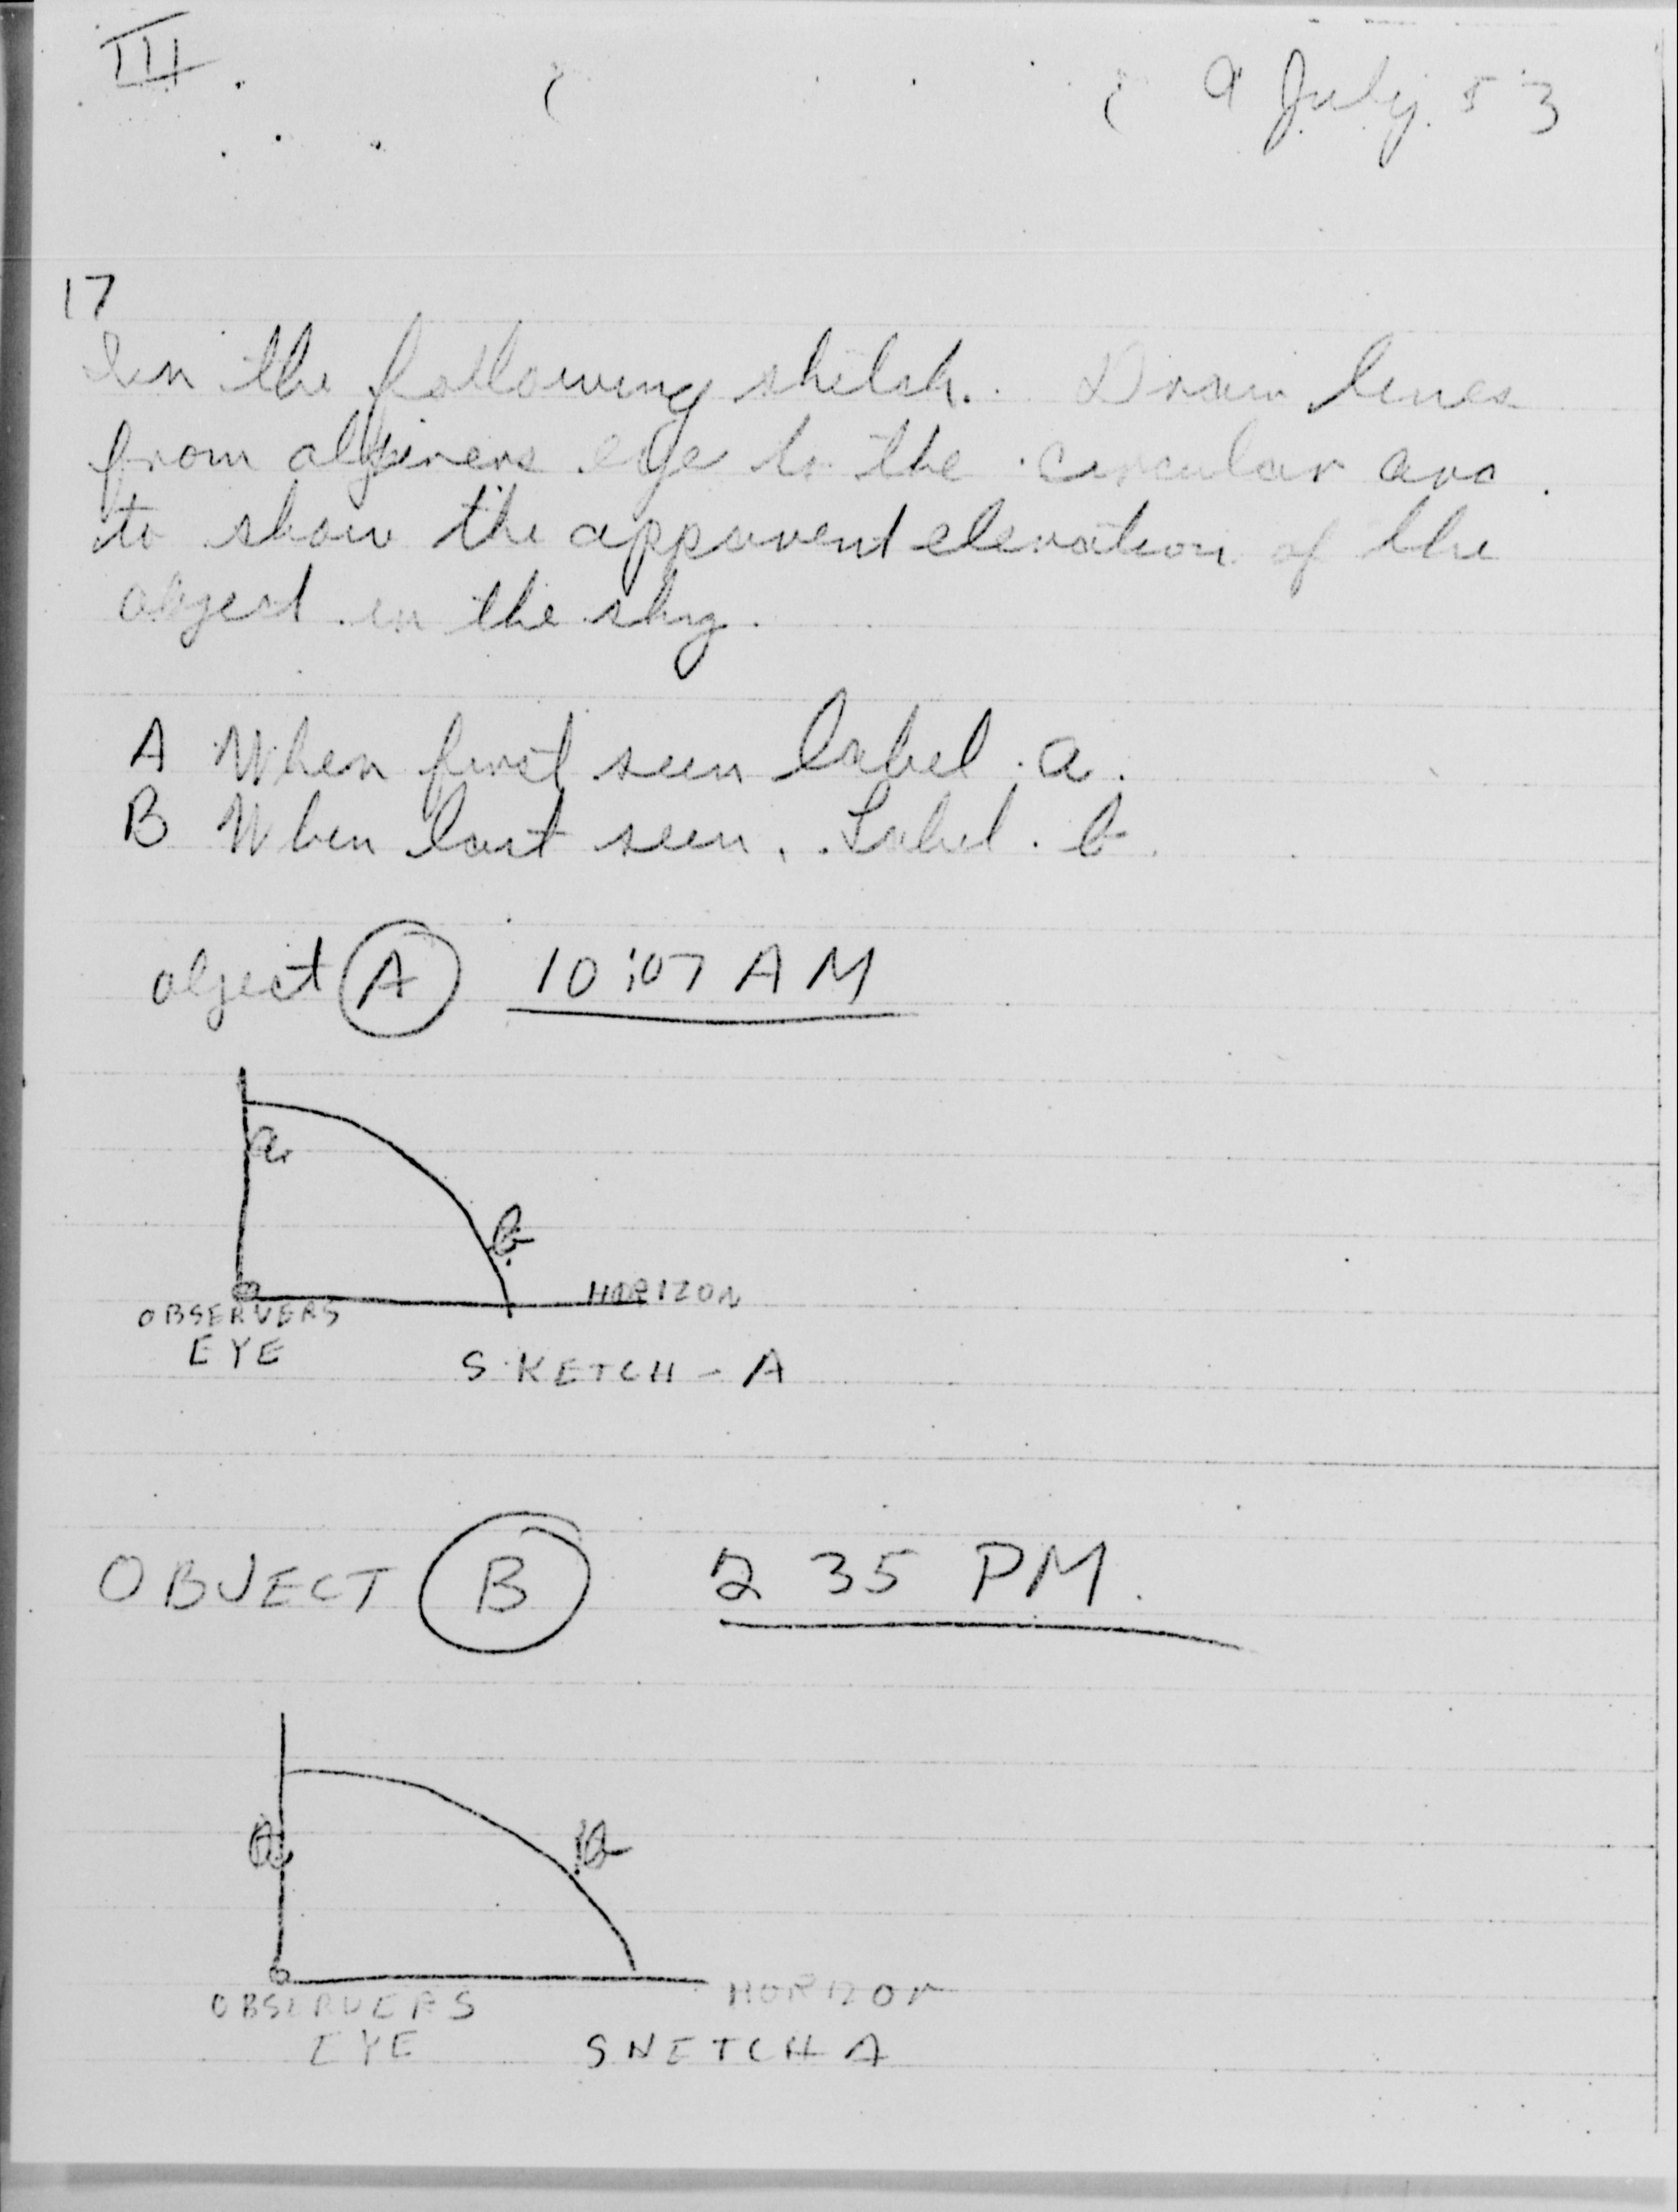 III.
9 July 53
17
In the following sketch. Draw lines
from observers eye to the circular arc.
to show the apparent elevation of the
object in the sky.
A When first seen label a.
B When last seen. Label. b.
object A 10:07 AM
a
b
HORIZON
OBSERVERS
EYE
SKETCH - A
OBJECT B 2 35 PM.
a
b
HORIZON
OBSERVERS
EYE
SKETCH A